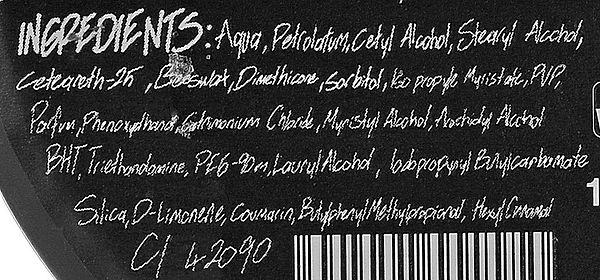 INGREDIENTS: Aqua, Petrolatum, Cetyl Alcohol, Stearyl Alcohol,
Ceteareth-25, Beeswax, Dimethicone, Sorbitol, Isopropyle Myristate, PVP,
Parfum, Phenoxyethanol, Cetrimonium Chloride, Myristyl Alcohol, Arachidyl Alcohol
BHT, Triethanolamine, PEG-90m, Lauryl Alcohol, Iodopropynyl Butylcarbamate
Silica, D-Limonene, Coumarin, Butylphenyl Methylpropional, Hexyl Cinnamal
CI 42090